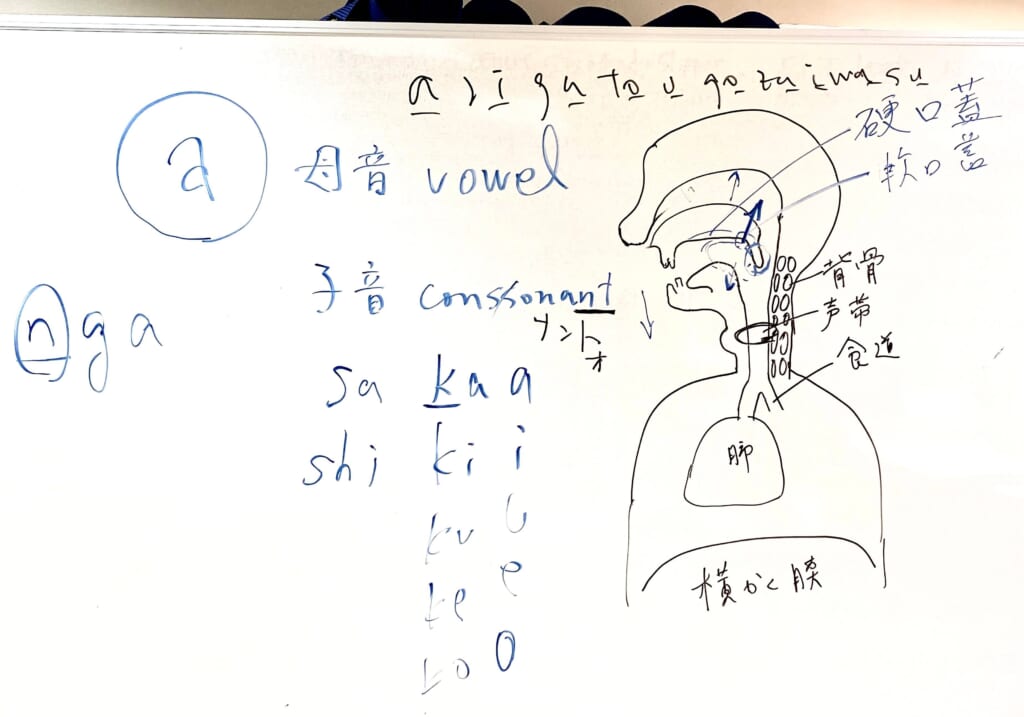 a ri ga to u go za i ma su
硬口蓋
軟口蓋
a 母音 vowel
子音 conssonant
nga
sa ka a
shi ki i
ku u
ke e
ko o
背骨
声帯
食道
肺
横かく膜